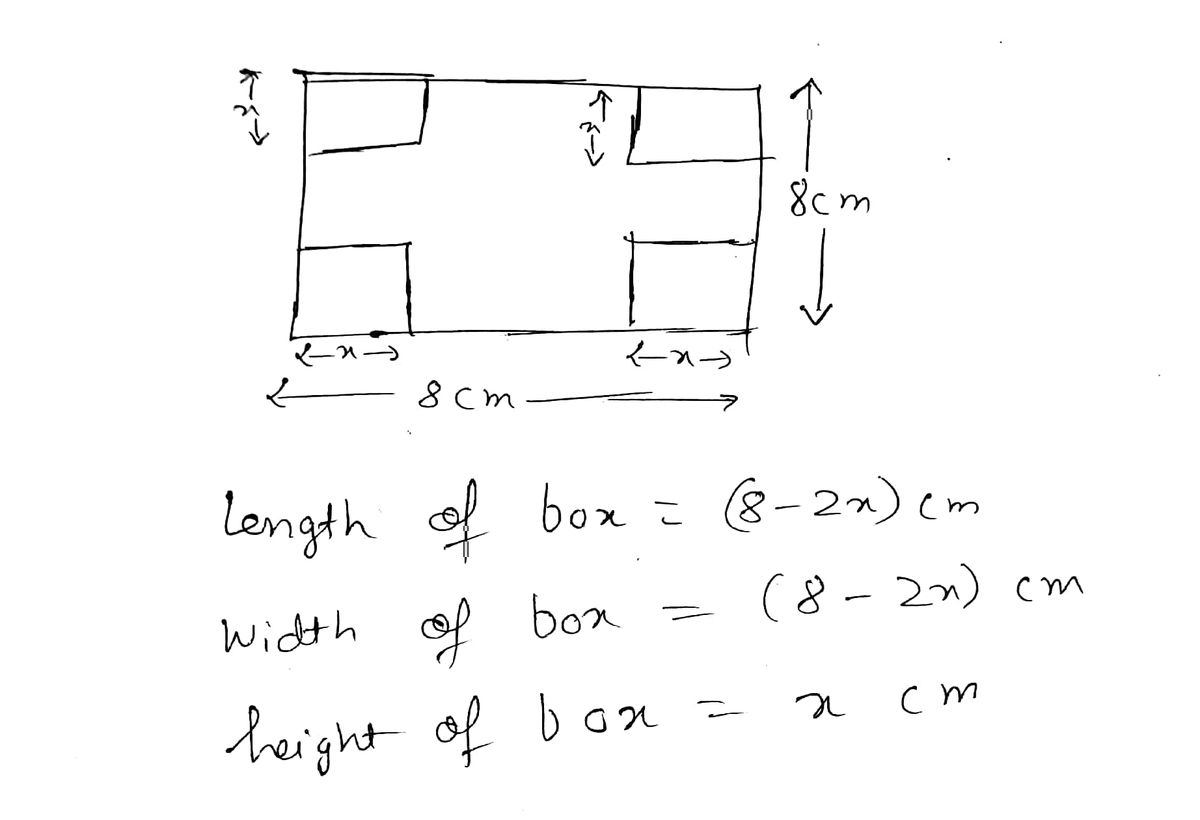 x
x
8cm
x
x
8 cm
Length of box = (8-2x) cm
Width of box = (8-2x) cm
height of box = x cm